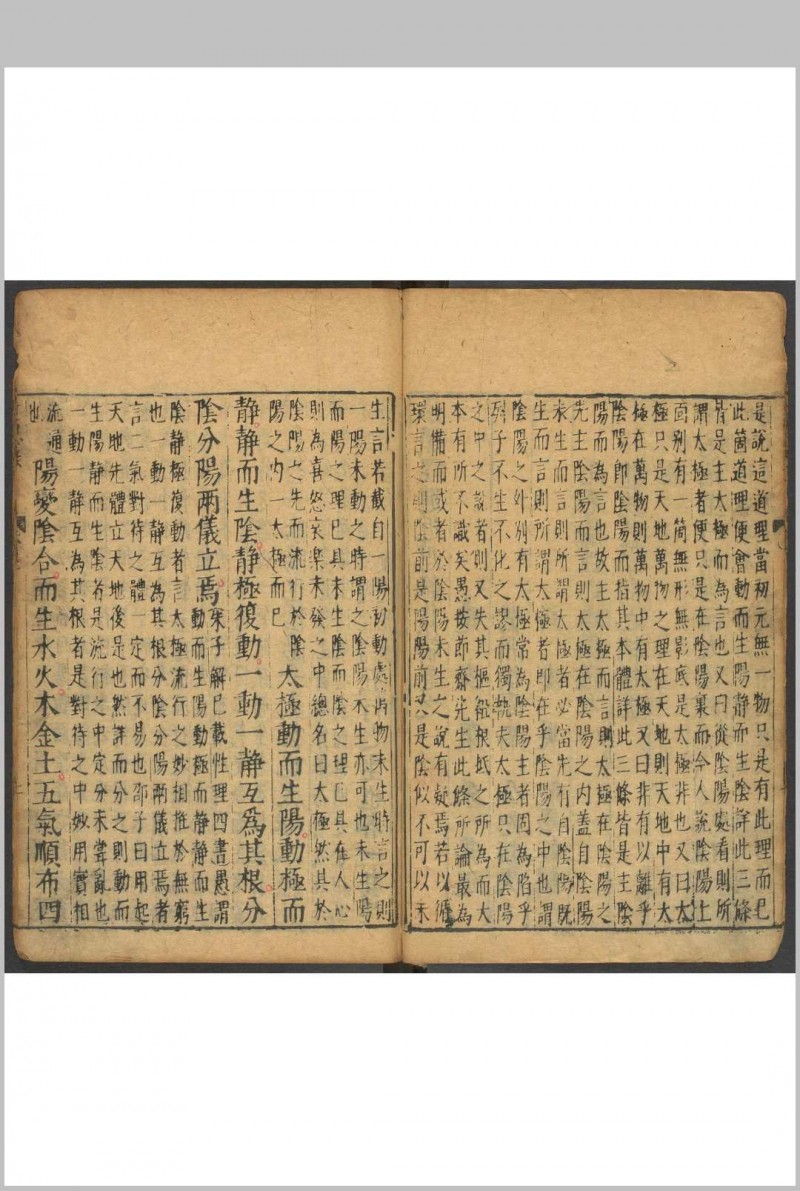 是說這道理當初元無一物只是有此理而已
此箇道理便會動而生陽靜而生陰詳此三條
皆是主太極而為言也又曰從陰陽處看則所
謂太極者便只是在陰陽裏而今人說陰陽上
面別有一箇無形無影底是太極非也又曰太
極只是天地萬物之理在天地則天地中有太
極在萬物則萬物中有太極又曰非有以離乎
陰陽即陰陽而指其本體詳此三條皆是主陰
陽而為言也故主太極而言則太極在陰陽之
先主陰陽而言則太極在陰陽之內蓋自陰陽
未生而言則所謂太極者必當先有自陰陽既
生而言則所謂太極者即在乎陰陽之中也謂
陰陽之外別有太極常為陰陽主者固為陷乎
列子不生不化之謬而獨執夫太極只在陰陽
之中之說者則又失其樞紐根柢之所為而大
本有所不識矣愚按節齋先生此條所論最為
明備而或者於陰陽未生之說有疑焉若以循
環言之則陰前是陽陽前又是陰似不可以未
生言若截自一陽初動處萬物未生時言之則
一陽未動之時謂之陰陽未生亦可也未生陽
而陽之理已具未生陰而陰之理已具在人心
則為喜怒哀樂未發之中總名曰太極然具於
陰陽之先而流行於陰
陽之內一太極而已
太極動而生陽動極而
靜靜而生陰靜極復動一動一靜互為其根分
陰分陽兩儀立焉
朱子解已載性理四書愚謂
動而生陽動極而靜靜而生
陰靜極復動者言太極流行之妙相推於無窮
也一動一靜互為其根分陰分陽兩儀立焉者
言二氣對待之體一定而不易也邵子曰用起
天地先體立天地後是也然詳而分之則動而
生陽靜而生陰者是流行之中定分未嘗亂也
一動一靜互為其根者是對待之中妙用實相
流通
也
陽變陰合而生水火木金土五氣順布四